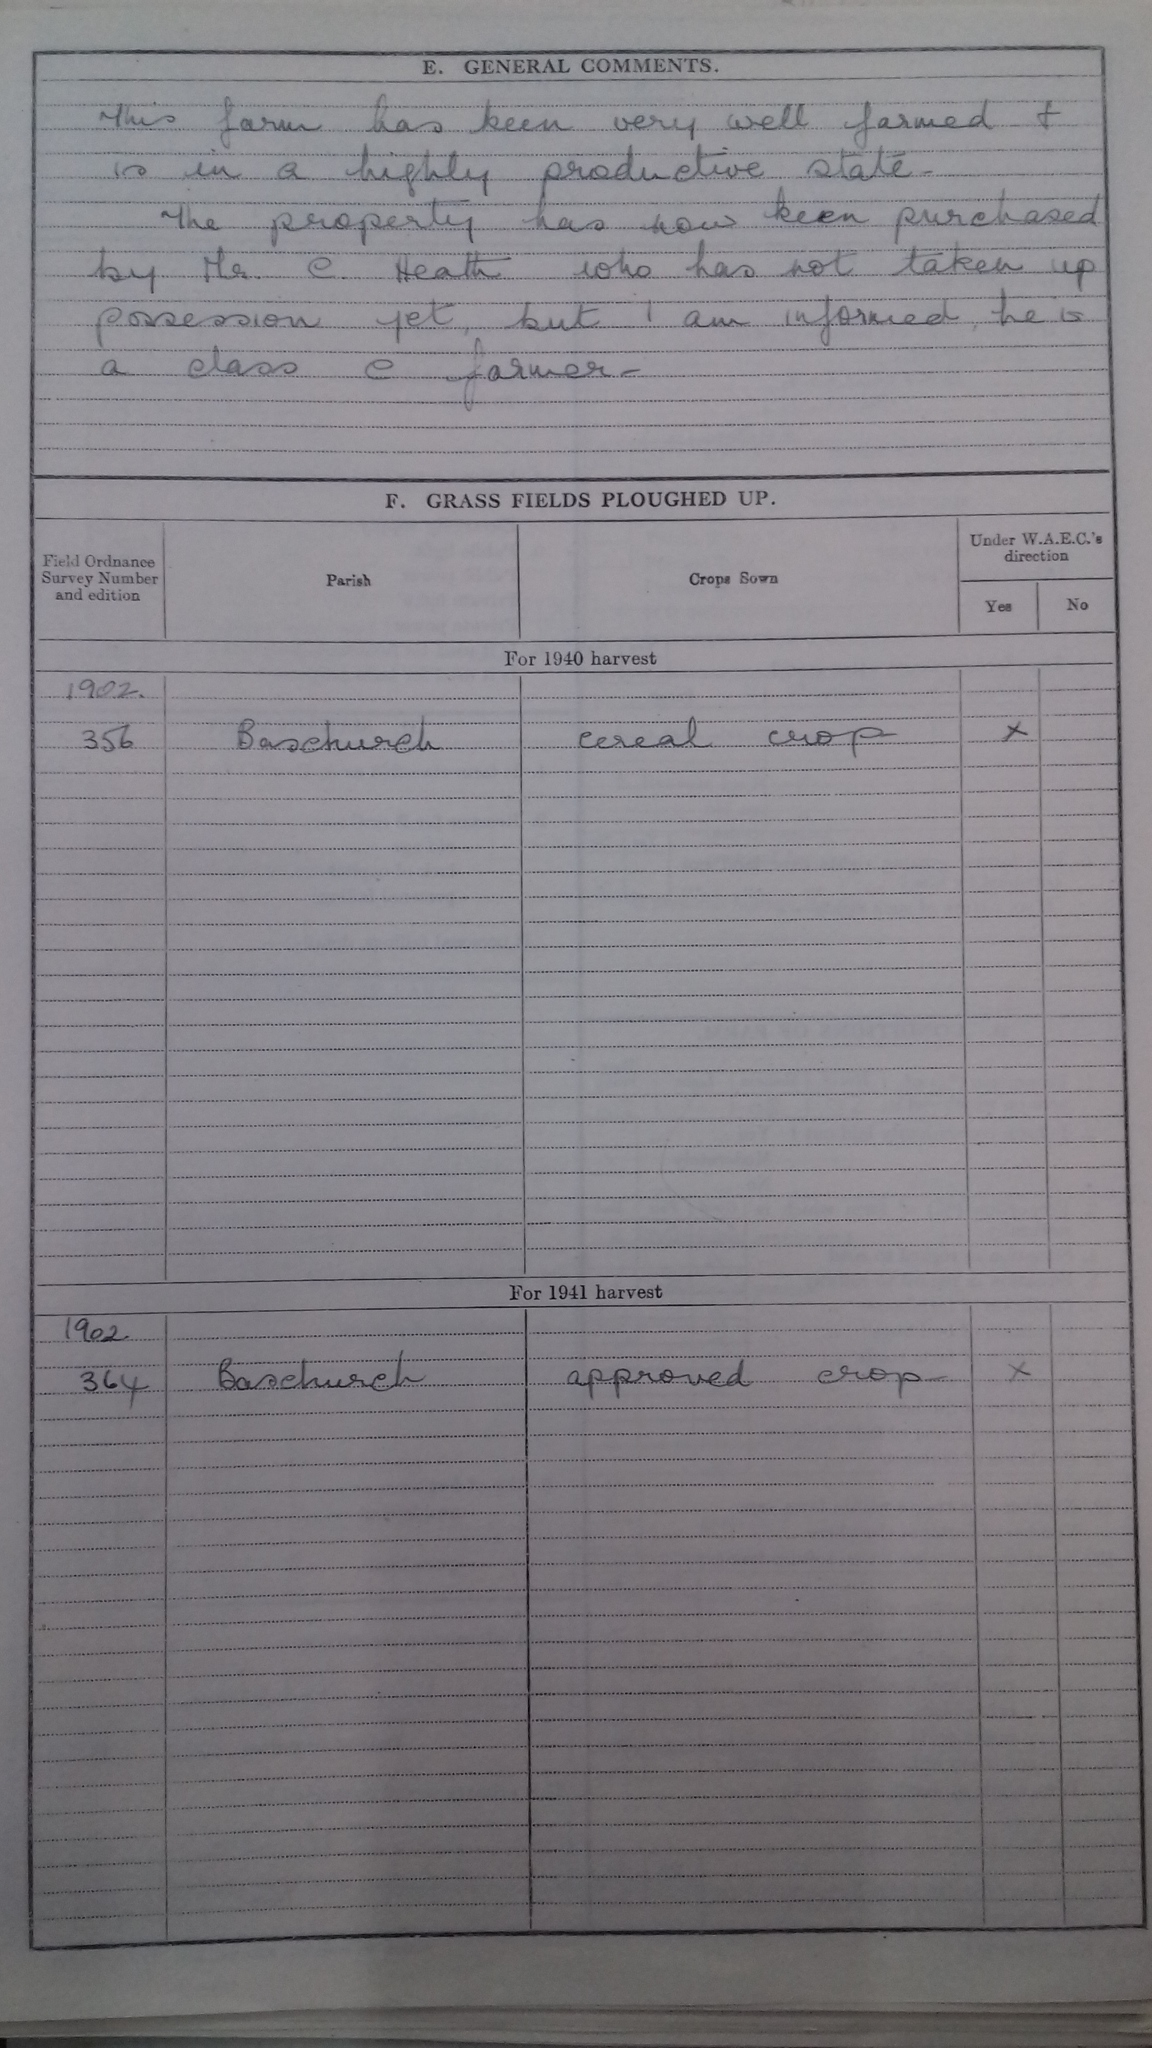 E. GENERAL COMMENTS.
This farm has been very well farmed &
is in a highly productive state -
The property has now been purchased
by Mr. C. Heath who has not taken up
possession yet, but I am informed, he is
a class C farmer -
F. GRASS FIELDS PLOUGHED UP.
Field Ordnance
Survey Number
and edition
Parish
Crops Sown
Under W.A.E.C.'s
direction
Yes
No
For 1940 harvest
1902.
356 Baschurch cereal crop x
For 1941 harvest
1902
364 Baschurch approved crop - x